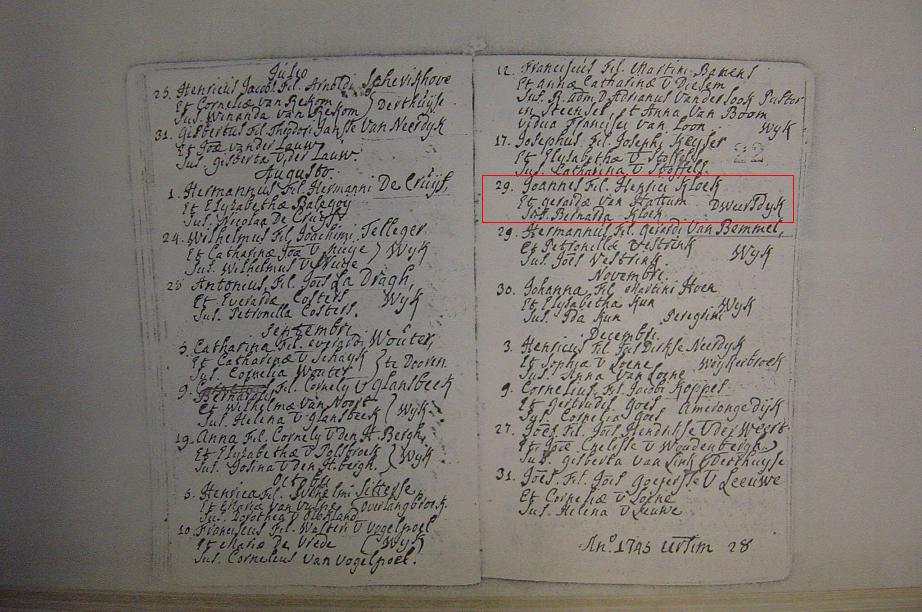 Julio
25. Henricus Jacobs Fil. Arnoldi Schevikhove
Et Corneliæ van Rekom
Sus. Winanda van Rekom } Derthuijse
31. Gisbertus Fil. Theodori Jansse Van Neerdyk
Et Joæ van der Lauw
Sus. Gisberta V der Lauw.
Augusto.
1. Hermannus Fil. Hermanni De Cruijf.
Et Elysabethæ
Sus. Nicolaa De Cruyff
24. Wilhelmus Fil. Joachimi Telleger
Et Catharinæ Joæ V Wyk
Sus. Wilhelmus
28 Antonius Fil. Joes La Dragh,
Et Everardæ Costers Wyk
Sus. Petronella Costers.
Septembri
3. Catharina Fil. Everardi Wouter,
Et Catharinæ V Schayk
Sus. Cornelia Wouter } te Dooren.
9. Bernardus Fil. Cornely V Glansbeek
Et Wilhelmæ Van Noort
Sus. Helena V Glansbeek } Wyk
19. Anna Fil. Cornely V den H. Bergh,
Et Elysabethæ V Polbroek
Sus. Josina V den H. bergh. } Wyk
Octobri
5. Henrica Fil. Wilhelmi Sitterse
Et Maria van
Sus. Dorothea V Overlangbroek.
10. Franciscus Fil. Walteri V Vogelpoel
Et Mariæ De Vrede (Wyk)
Sus. Cornelius Van Vogelpoel.
12. Franciscus Fil. Martini Bamens
Et Annæ Catharinæ V Diesem
Sus. R. adm. D Adrianus Vanderlook Pastor
in Steensel, et Anna Van Boom
vidua Francisci Van Loon. Wyk
17. Josephus Fil. Josephi Keyser
Et Elysabethæ V Stoffels 22
Sus. Catharina V Stoffels
29. Joannes Fil. Henrici Kloek
Et gerardæ van Hattum Dweersdyk
Sus. Bernarda Kloek
29. Hermannus Fil. Gerardi Van Bemmel,
Et Petronellæ Vestrink Wyk
Sus. Joes Vestrink
Novembri.
30. Johanna Fil. Martini Hoen
Et Elysabetha Kun Wyk
Sus. Ida Kun Peregrini
Decembri
3. Henricus Fil. Dirkse Neerdyk
Et Sophiæ V Loene Weykerbroek
Sus. Anna Van Loene
9. Cornelius Fil. Jacobi Koppes
Et Gertrudis Goes Amerongedijk
Sus. Cornelia Goes
27. Joes Fil. Joes Hendrikse V der Weert
Et Joæ Cnelisse V Woudenbergh
Sus. Gisberta Van Link (Derthuyse
31. Joes. Fil. Joes Goefersse V Leeuwe
Et Corneliæ V Loene
Sus. Helena V Leuwe
An° 1745 28